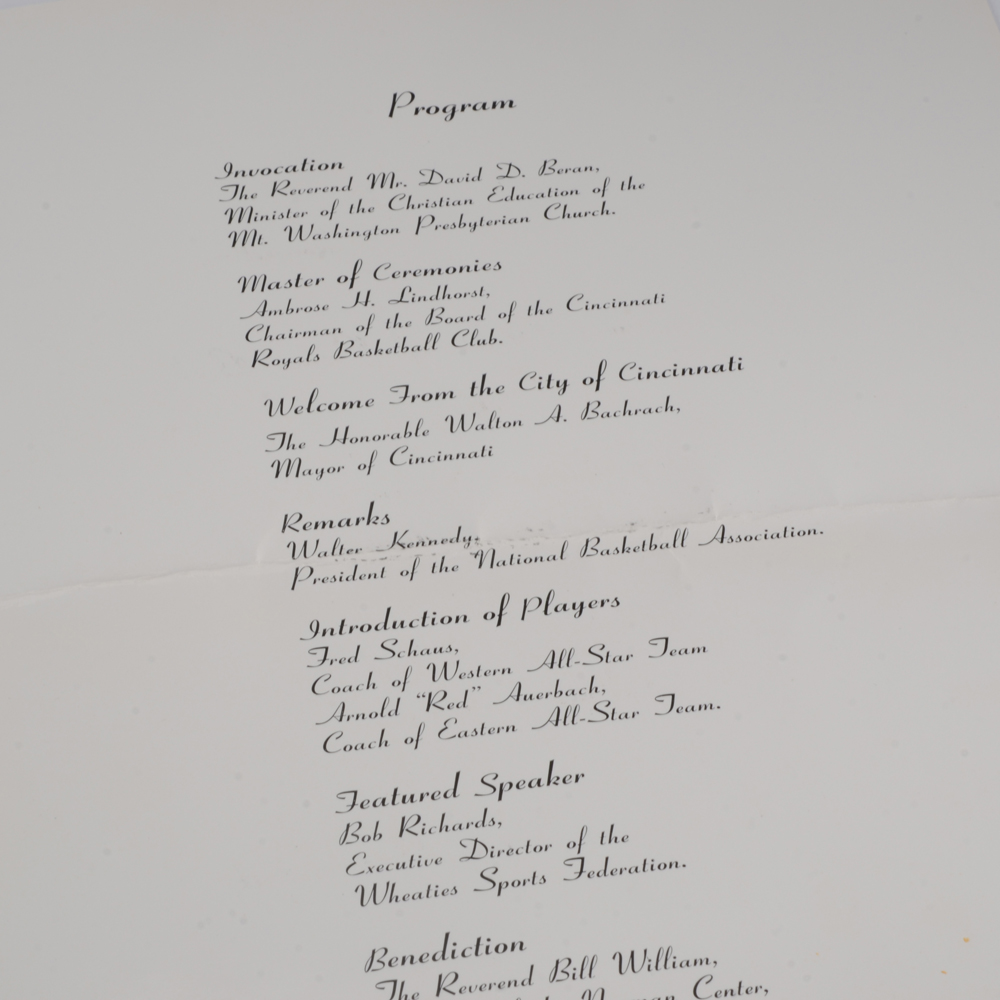 Program
Invocation
The Reverend Mr. David D. Beran,
Minister of the Christian Education of the
Mt. Washington Presbyterian Church.
Master of Ceremonies
Ambrose H. Lindhorst,
Chairman of the Board of the Cincinnati
Royals Basketball Club.
Welcome From the City of Cincinnati
The Honorable Walton A. Bachrach,
Mayor of Cincinnati
Remarks
Walter Kennedy,
President of the National Basketball Association.
Introduction of Players
Fred Schaus,
Coach of Western All-Star Team
Arnold "Red" Auerbach,
Coach of Eastern All-Star Team.
Featured Speaker
Bob Richards,
Executive Director of the
Wheaties Sports Federation.
Benediction
The Reverend Bill William,
Center,